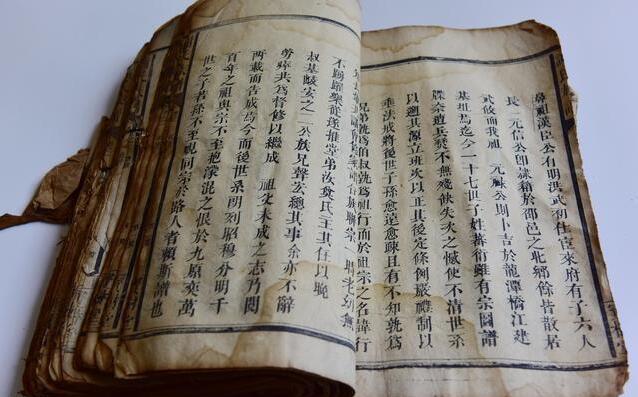 鼻祖漢臣公有明洪武初仕宦來府有子六人
長 元信公卽隸籍於邵邑之北鄉餘皆散居
武攸而我祖 元祿公則卜吉於龍潭橋江建
基址焉迄今一十七世子姓蕃衍雖有宗圖譜
牒奈遭兵燹不無殘缺失次之憾使不清世系
以遡其源立班次以正其後定條例嚴禮制以
垂法戒將後世子孫愈遠愈疎且有不知孰爲
兄弟孰爲伯叔孰爲祖行而於祖宗之名諱行
聯宗 時老幼無
不踴躍樂從遂推堂弟汝賛氏主其任以晚
叔基峻安之二公族兄聲安總其事余亦不辭
勞瘁共爲督修以繼成 祖父未成之志乃閱
兩載而告成焉今而後世系明列昭穆分明千
百年之祖與宗不至抱濛混之恨於九原奕萬
世之子若孫不至視同宗於路人者賴斯譜也